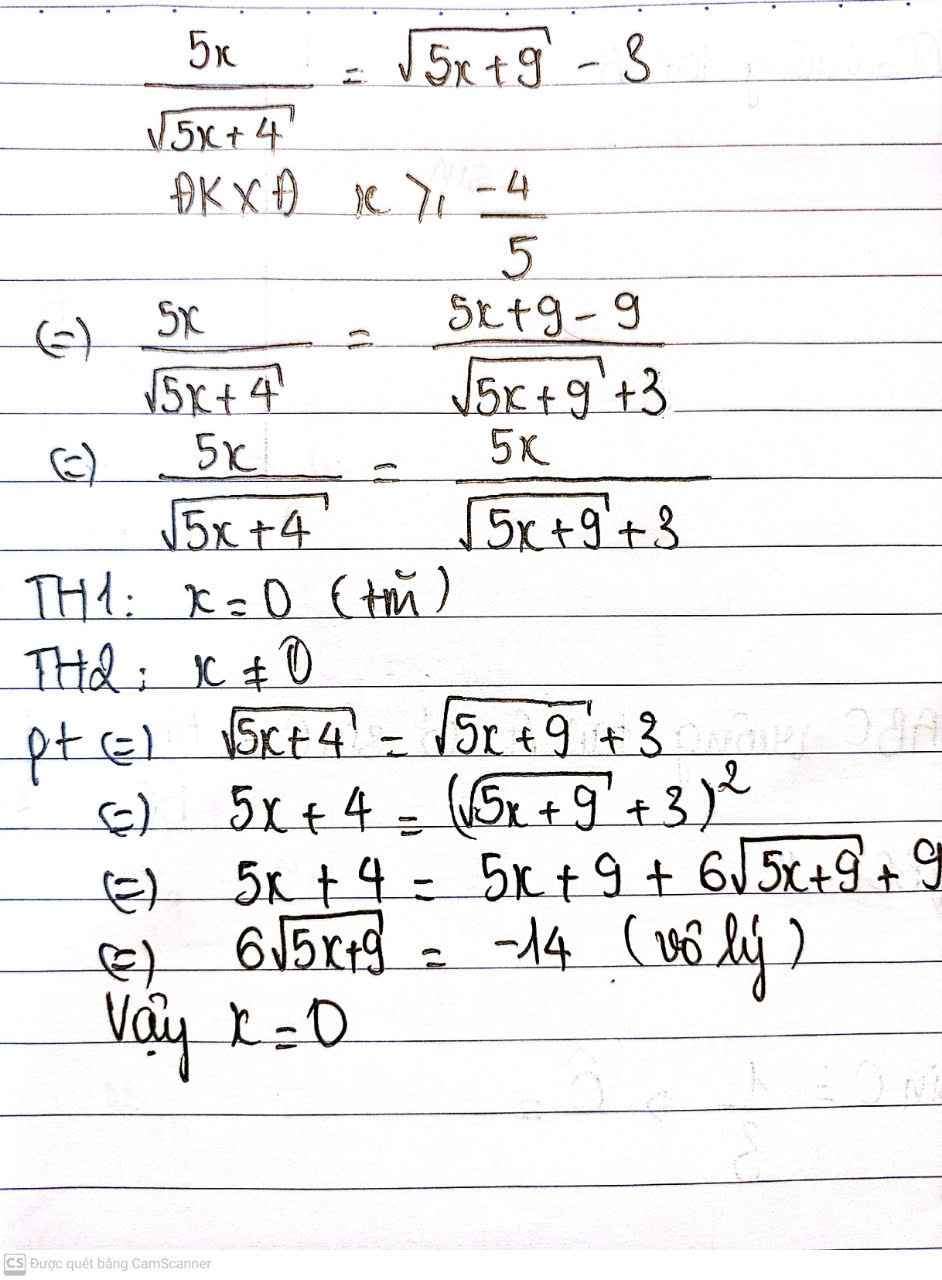 5x/√(5x+4) = √(5x+9) - 3
ĐKXĐ x ≥ -4/5
(=) 5x/√(5x+4) = (5x+9-9)/(√(5x+9)+3)
(=) 5x/√(5x+4) = 5x/(√(5x+9)+3)
TH1: x=0 (tm)
TH2: x ≠ 0
pt (=) √(5x+4) = √(5x+9) + 3
(=) 5x + 4 = (√(5x+9) + 3)²
(=) 5x + 4 = 5x + 9 + 6√(5x+9) + 9
(=) 6√(5x+9) = -14 (vô lý)
Vậy x = 0
CS Được quét bằng CamScanner